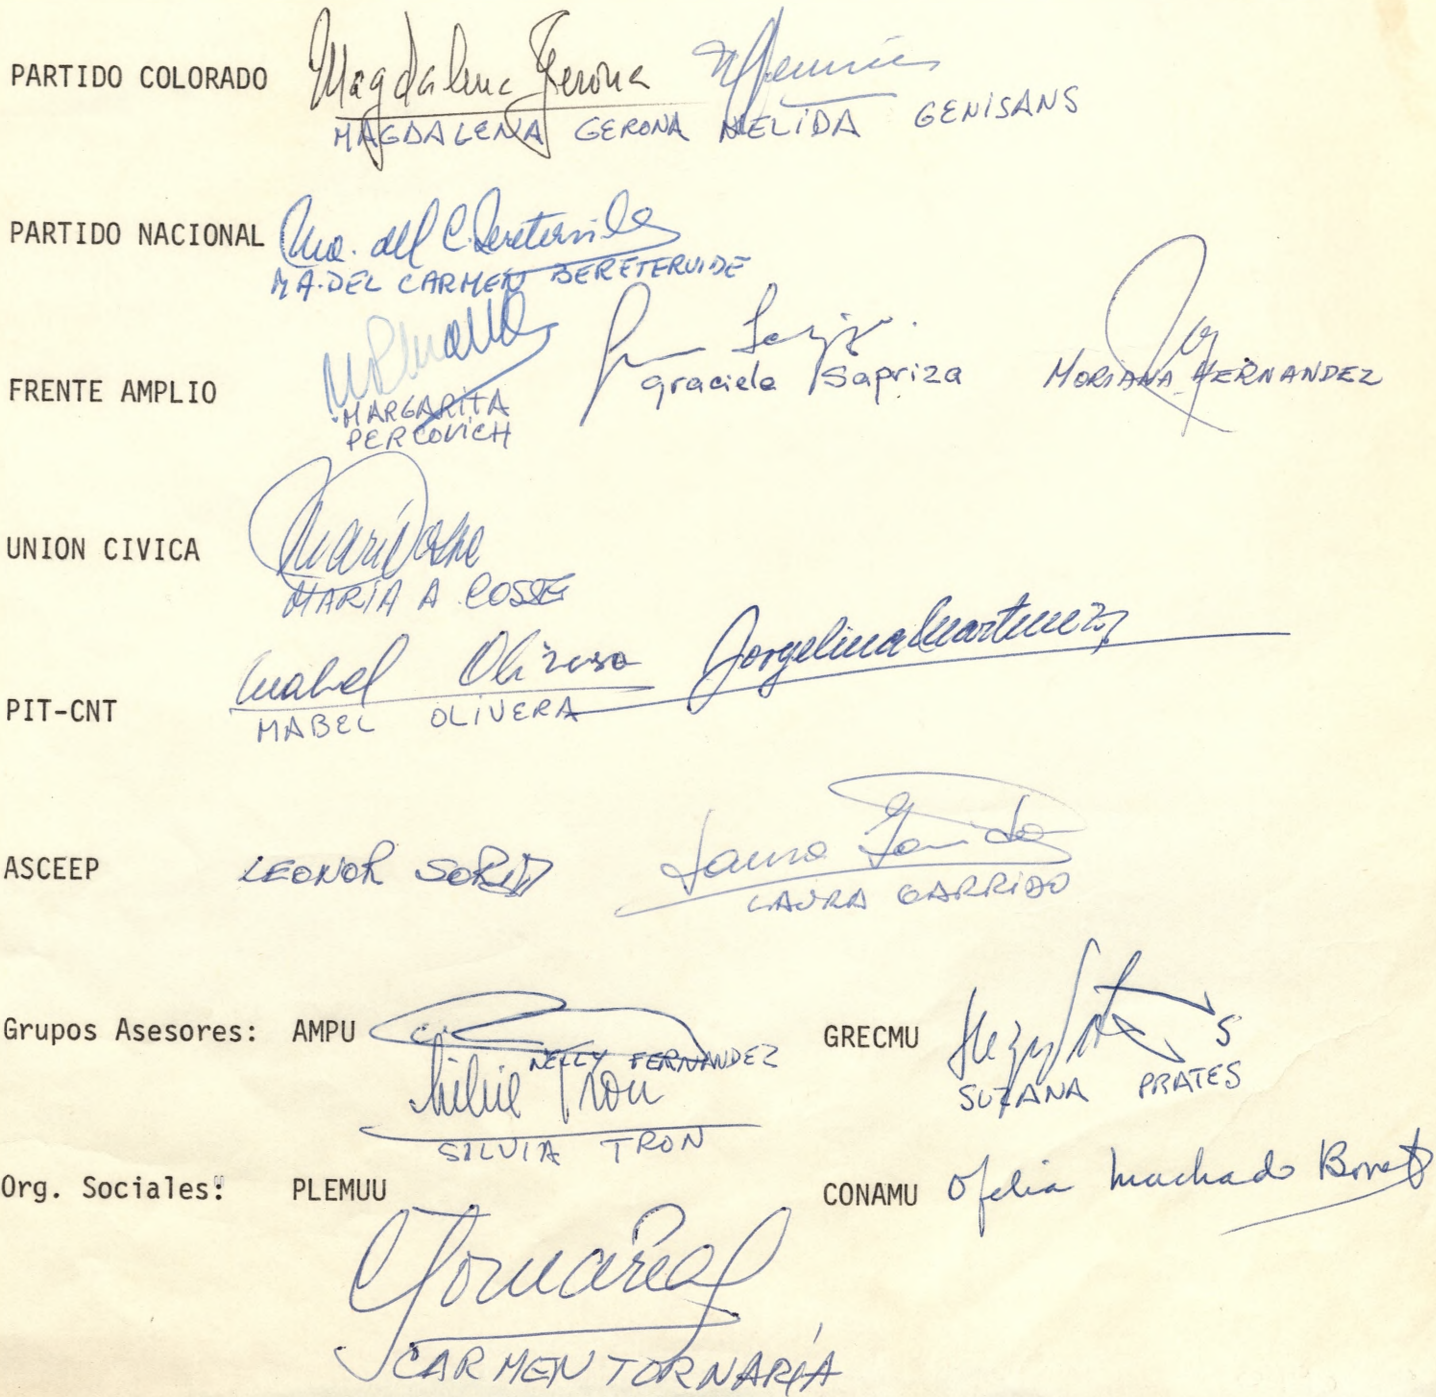 PARTIDO COLORADO Magdalena Gerona
MAGDALENA GERONA NELIDA GENISANS
PARTIDO NACIONAL Ma. del C. Beretervide
MA.DEL CARMEN BERETERVIDE
FRENTE AMPLIO
MARGARITA
PERCOVICH
graciela Sapriza MORIANA HERNANDEZ
UNION CIVICA
MARÍA A COSSE
Mabel Olivera Jorgelina Martinez
PIT-CNT MABEL OLIVERA
ASCEEP LEONOR SORIA Laura Garrido
LAURA GARRIDO
Grupos Asesores: AMPU GRECMU
NELLY FERNANDEZ
SUZANA PRATES
Silvia Tron
SILVIA TRON
Org. Sociales: PLEMUU CONAMU Ofelia Machado Bonet
CARMEN TORNARÍA